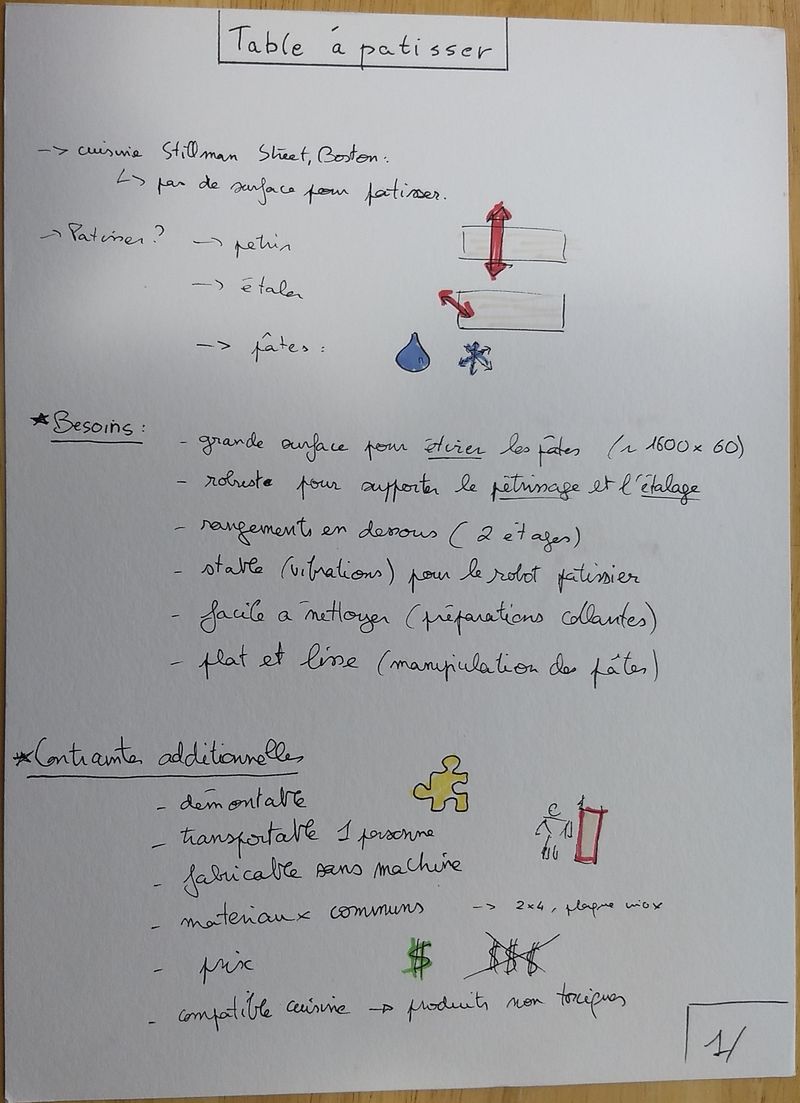 Table à patisser
-> cuisine Stillman Street, Boston :
↳ pas de surface pour patisser.
-> Patisser ? -> petrir
-> étaler
-> pâtes :
* Besoins :
- grande surface pour étirer les pâtes (~ 1600 x 60)
- robuste pour supporter le pétrissage et l'étalage
- rangements en dessous (2 étages)
- stable (vibrations) pour le robot patissier
- facile a nettoyer (préparations collantes)
- plat et lisse (manipulation des pâtes)
* Contraintes additionnelles
- démontable
- transportable 1 personne
- fabricable sans machine
- materiaux communs -> 2x4, plaque inox
- prix $ $$$
- compatible cuisine -> produits non toxiques
1/